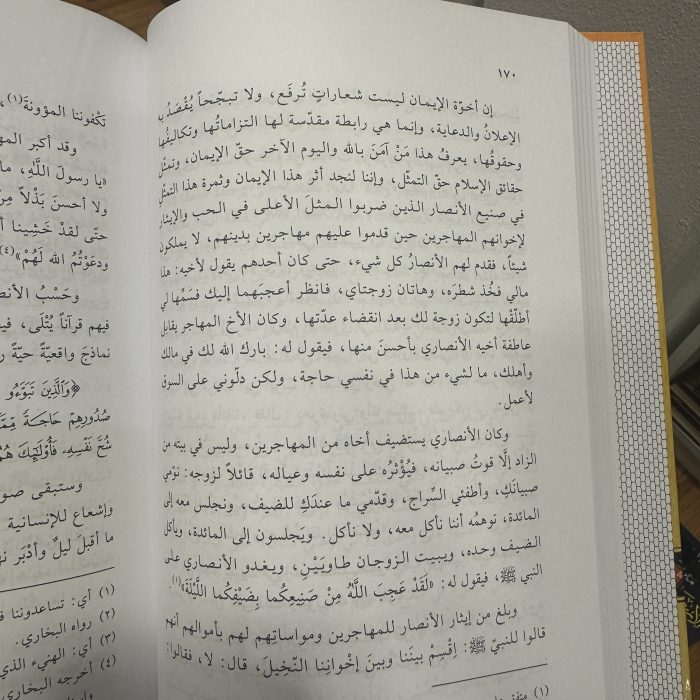 ١٧٠
إن أخوّة الإيمان ليست شعاراتٍ تُرفَع، ولا تبجّحاً يُقْصَدُ به
الإعلانُ والدعاية، وإنما هي رابطة مقدّسة لها التزاماتُها وتكاليفُها
وحقوقُها، يعرفُ هذا مَنْ آمَنَ بالله واليوم الآخر حقّ الإيمان، وتمثّل
حقائق الإسلام حقّ التمثّل، وإننا لنجد أثر هذا الإيمان وثمرة هذا التمثّل
في صنيع الأنصار الذين ضربوا المثلَ الأعلى في الحب والإيثار
لإخوانهم المهاجرين حين قدموا عليهم مهاجرين بدينهم، لا يملكون
شيئاً، فقدم لهم الأنصارُ كل شيء، حتى كان أحدهم يقول لأخيه: هذا
مالي فخُذ شطرَه، وهاتان زوجتاي، فانظر أعجبَهما إليك فسَمِّها لي
أطلّقْها لتكون زوجة لك بعد انقضاء عدّتها، وكان الأخ المهاجر يقابل
عاطفة أخيه الأنصاري بأحسنَ منها، فيقول له: بارك الله لك في مالك
وأهلك، ما لشيء من هذا في نفسي حاجة، ولكن دلّوني على السوق
لأعمل.
وكان الأنصاري يستضيف أخاه من المهاجرين، وليس في بيته من
الزاد إلّا قوتُ صبيانه، فيُؤْثرُه على نفسه وعياله، قائلاً لزوجه: نوّمي
صبيانَكِ، وأطفئي السِّراج، وقدّمي ما عندَكِ للضيف، ونجلس معه إلى
المائدة، نوهمُه أننا نأكل معه، ولا نأكل. ويَجلسون إلى المائدة، ويأكل
الضيف وحده، ويبيت الزوجان طاويَيْنِ، ويغدو الأنصاري على
النبي ﷺ، فيقول له: «لَقَدْ عَجِبَ اللَّهُ مِنْ صَنِيعِكُما بِضَيْفِكُما اللَّيْلَةَ»(١).
وبلغ من إيثار الأنصار للمهاجرين ومواساتِهم لهم بأموالهم أنهم
قالوا للنبيّ ﷺ: اِقْسِمْ بيننا وبينَ إخْوانِنا النَّخِيلَ، قال: لا، فقالوا:
(١) متفق
تَكْفوننا المؤونةَ(١)،
وقد أكبر
«يا رسولَ اللَّهِ، ما
ولا أحسنَ بَذْلاً مِنْ
حتّى لقدْ خَشِينا
ودعَوْتُمُ الله لَهُمْ»(٤)
وحَسْبُ
فيهم قرآناً يُتْلَى،
نماذجَ واقعيّةً حيّةً
﴿وَالَّذِينَ تَبَوَّءُو
صُدُورِهِمْ حَاجَةً
شُحَّ نَفْسِهِ فَأُوْلَٰئِكَ
وستبقى
وإشعاع للإنسانية
ما أقبلَ ليلٌ وأدْبَر
(١) أي: تساعدوننا
(٢) رواه البخاري.
(٣) أي: الهنيء الذي
(٤) أخرجه البخاري